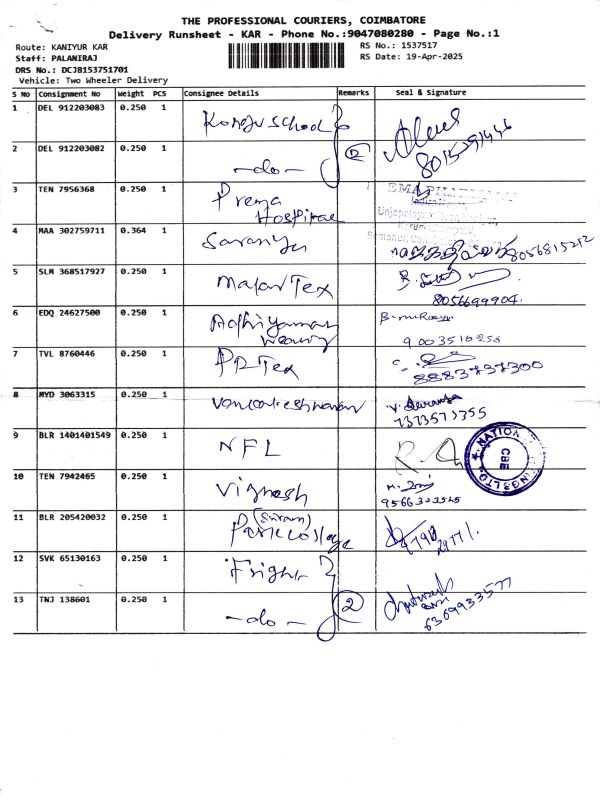 THE PROFESSIONAL COURIERS, COIMBATORE
Delivery Runsheet - KAR - Phone No.:9047080280 - Page No.:1
Route: KANIYUR KAR
RS No.: 1537517
Staff: PALANIRAJ
RS Date: 19-Apr-2025
DRS No.: DCJB153751701
Vehicle: Two Wheeler Delivery
S No Consignment No Weight PCS Consignee Details Remarks Seal & Signature
1 DEL 912203083 0.250 1 Kongu School
2 DEL 912203082 0.250 1 -do- 2
3 TEN 7956368 0.250 1 Prema
Hospital
4 MAA 302759711 0.364 1 Saranya 8056815212
5 SLM 368517927 0.250 1 Malar Tex
8056699904.
6 EDQ 24627500 0.250 1 Adhiyaman
9003510253
7 TVL 8760446 0.250 1 PP Tex
8883737300
8 MYD 3063315 0.250 1 Vankateshwaran
7373573355
9 BLR 1401401549 0.250 1 NFL
10 TEN 7942465 0.250 1 Vignesh
9566303525
11 BLR 205420032 0.250 1
Park College
12 SVK 65130163 0.250 1
13 TNJ 138601 0.250 1 -do- 2
6369933577